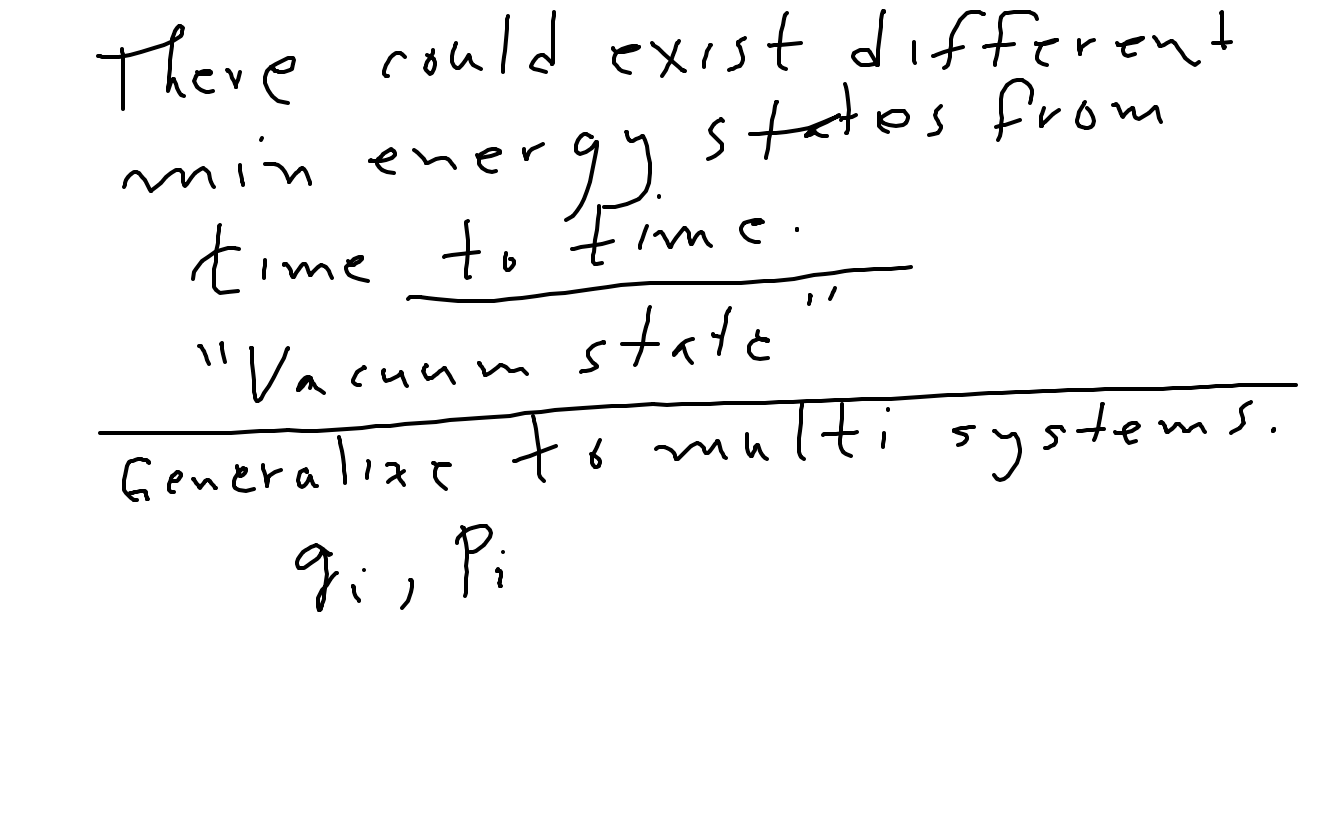 There could exist different
min energy states from
time to time.
"Vacuum state"
Generalize to multi systems.
qi, Pi